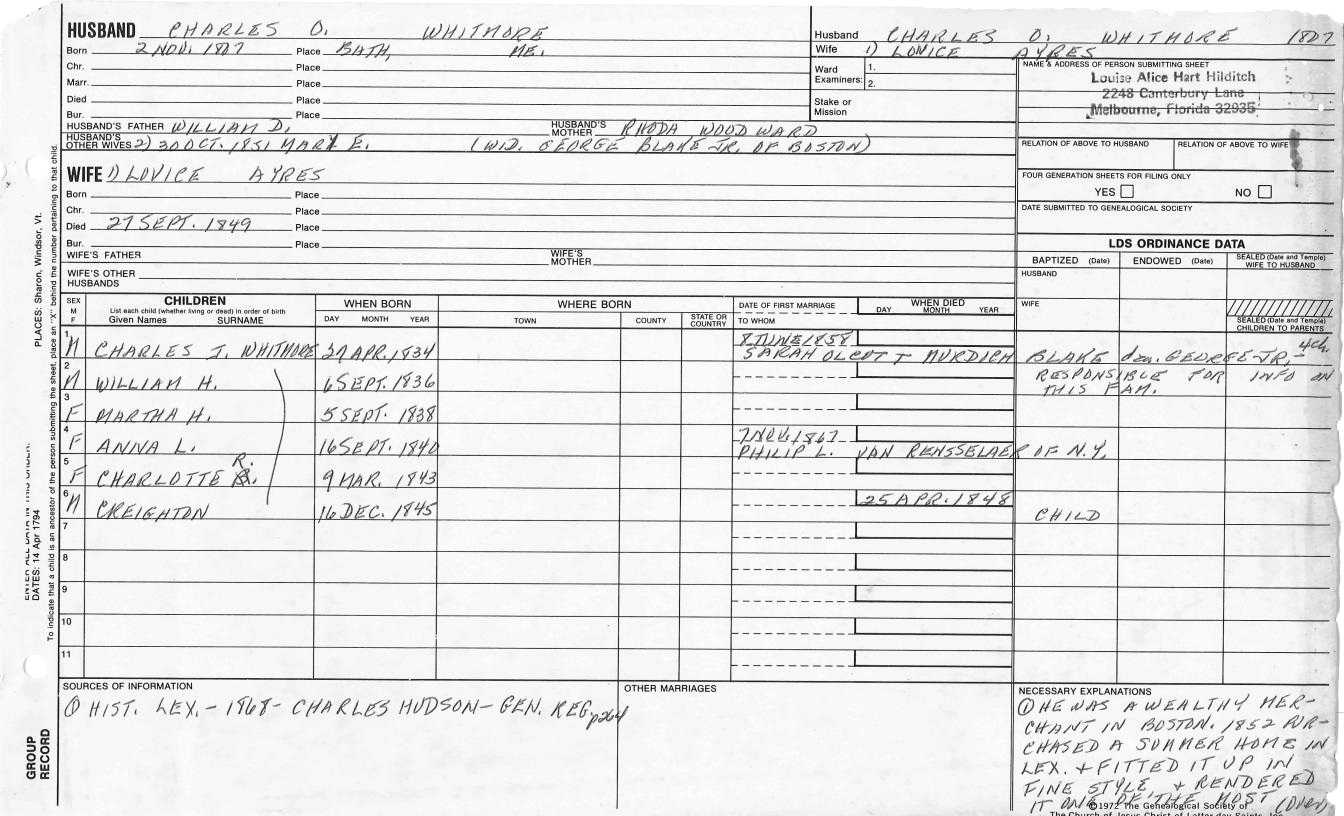 HUSBAND CHARLES O. WHITMORE
Born 2 NOV. 1807 Place BATH, ME.
Chr. Place
Marr. Place
Died Place
Bur. Place
HUSBAND'S FATHER WILLIAM D. HUSBAND'S MOTHER RHODA WOODWARD
HUSBAND'S OTHER WIVES 2) 30 OCT. 1851 MARY E. (WID. GEORGE BLAKE JR. OF BOSTON)
Husband CHARLES O. WHITMORE 1807
Wife 1) LOVICE AYRES
Ward Examiners: 1.
2.
Stake or Mission
NAME & ADDRESS OF PERSON SUBMITTING SHEET
Louise Alice Hart Hilditch
2248 Canterbury Lane
Melbourne, Florida 32935
RELATION OF ABOVE TO HUSBAND RELATION OF ABOVE TO WIFE
FOUR GENERATION SHEETS FOR FILING ONLY
YES NO
DATE SUBMITTED TO GENEALOGICAL SOCIETY
WIFE 1) LOVICE AYRES
Born Place
Chr. Place
Died 27 SEPT. 1849 Place
Bur. Place
WIFE'S FATHER WIFE'S MOTHER
WIFE'S OTHER HUSBANDS
LDS ORDINANCE DATA
BAPTIZED (Date) ENDOWED (Date) SEALED (Date and Temple) WIFE TO HUSBAND
HUSBAND
WIFE
SEALED (Date and Temple) CHILDREN TO PARENTS
SEX M F
CHILDREN
List each child (whether living or dead) in order of birth
Given Names SURNAME
WHEN BORN
DAY MONTH YEAR
WHERE BORN
TOWN COUNTY STATE OR COUNTRY
DATE OF FIRST MARRIAGE
TO WHOM
WHEN DIED
DAY MONTH YEAR
1 M CHARLES J. WHITMORE 27 APR. 1834 8 JUNE 1858
SARAH OLCOTT MURDICH BLAKE dau. GEORGE JR. - 4 ch.
2 M WILLIAM H. 6 SEPT. 1836 RESPONSIBLE FOR INFO ON
THIS FAM.
3 F MARTHA H. 5 SEPT. 1838
4 F ANNA L. 16 SEPT. 1840 7 NOV. 1867
PHILIP L. VAN RENSSELAER OF N.Y.
5 F CHARLOTTE R. 9 MAR. 1843
6 M CREIGHTON 16 DEC. 1845 25 APR. 1848
CHILD
7
8
9
10
11
SOURCES OF INFORMATION
① HIST. LEX. - 1868 - CHARLES HUDSON - GEN. REG. p264
OTHER MARRIAGES
NECESSARY EXPLANATIONS
① HE WAS A WEALTHY MER-
CHANT IN BOSTON. 1852 PUR-
CHASED A SUMMER HOME IN
LEX. + FITTED IT UP IN
FINE STYLE + RENDERED
IT ONE OF THE MOST (Over)
©1972 The Genealogical Society of
The Church of Jesus Christ of Latter-day Saints, Inc.
PLACES: Sharon, Windsor, Vt.
DATES: 14 Apr 1794
To indicate that a child is an ancestor of the person submitting the sheet, place an "X" behind the number pertaining to that child.
GROUP RECORD